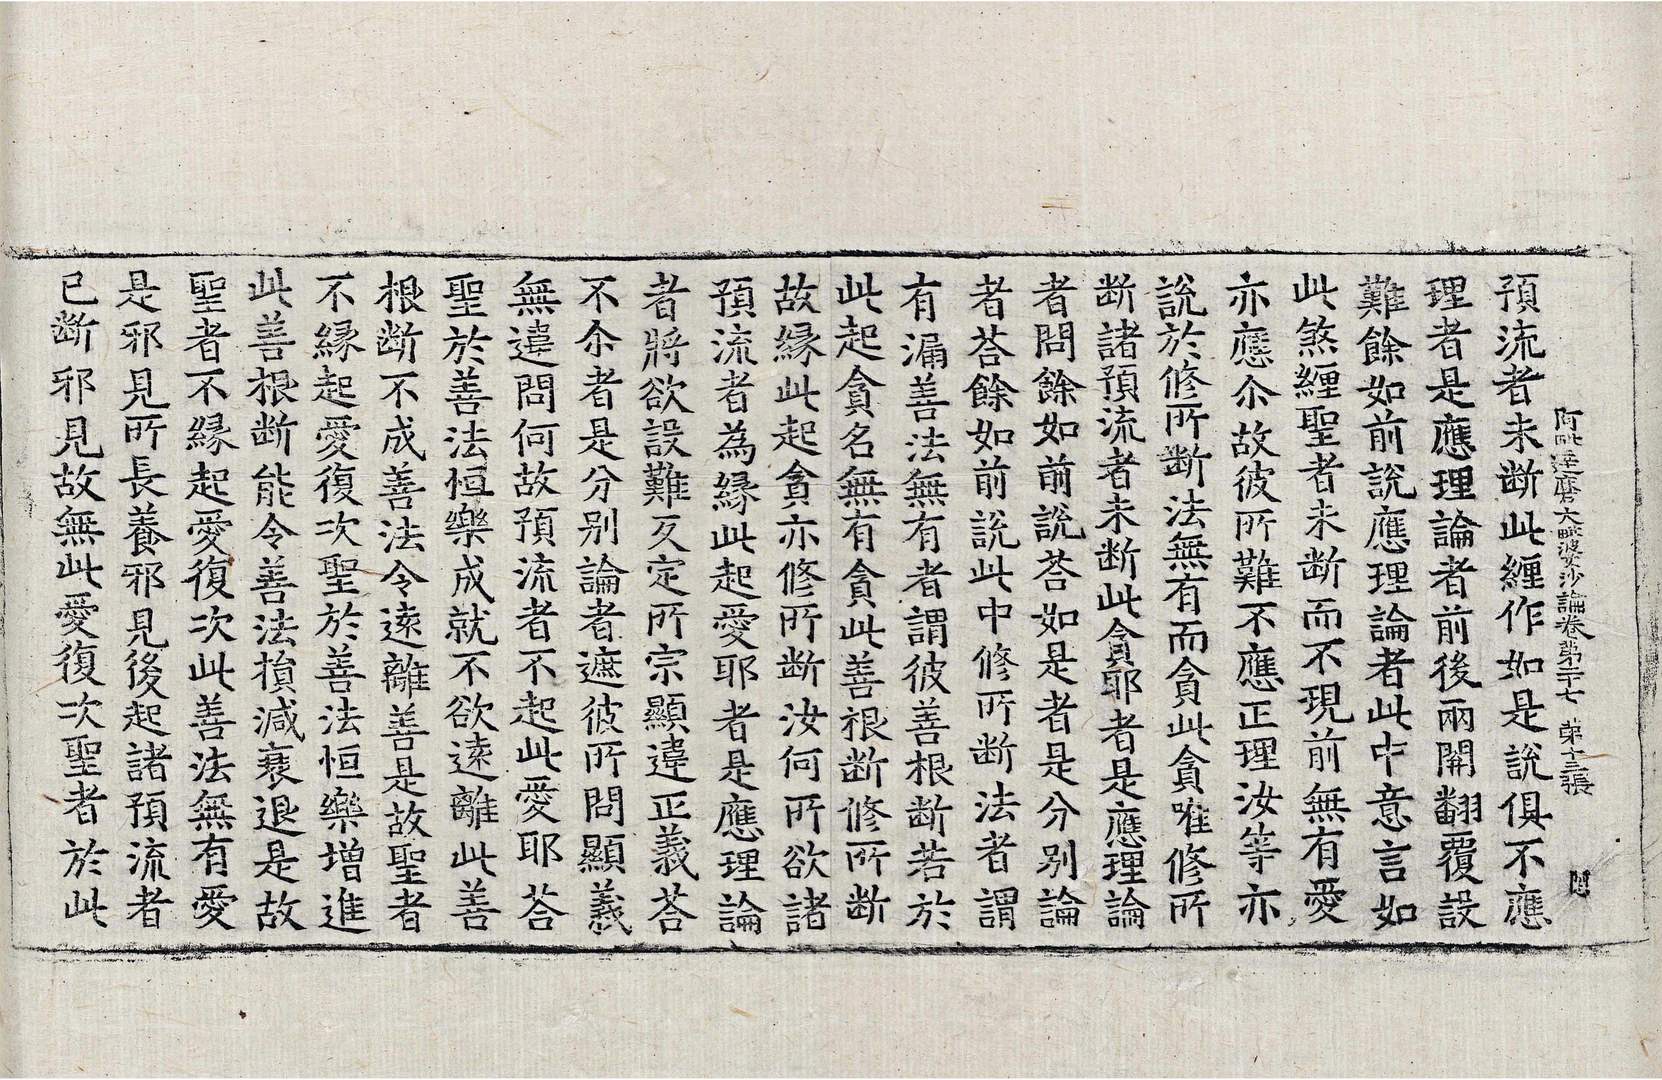 阿毗達磨大毗婆沙論卷第二十七　第十三張　閏
預流者未断此纏作如是說俱不應
理者是應理論者前後兩開翻覆設
難餘如前說應理論者此中意言如
此煞纏聖者未断而不現前無有愛
亦應尒故彼所難不應正理汝等亦
說於修所断法無有而貪此貪唯修所
断諸預流者未断此貪耶者是應理論
者問餘如前說荅如是者是分別論
者荅餘如前說此中修所断法者謂
有漏善法無有者謂彼善根断若於
此起貪名無有貪此善根断修所断
故縁此起貪亦修所断汝何所欲諸
預流者為縁此起愛耶者是應理論
者將欲設難叉定所宗顯違正義荅
不尒者是分別論者遮彼所問顯義
無違問何故預流者不起此愛耶荅
聖於善法恒樂成就不欲遠離此善
根断不成善法令遠離善是故聖者
不縁起愛復次聖於善法恒樂增進
此善根断能令善法損減衰退是故
聖者不縁起愛復次此善法無有愛
是邪見所長養邪見後起諸預流者
已断邪見故無此愛復次聖者於此